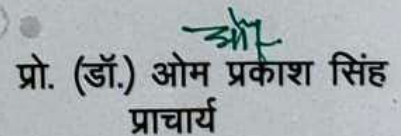 प्रो. (डॉ.) ओम प्रकाश सिंह
प्राचार्य